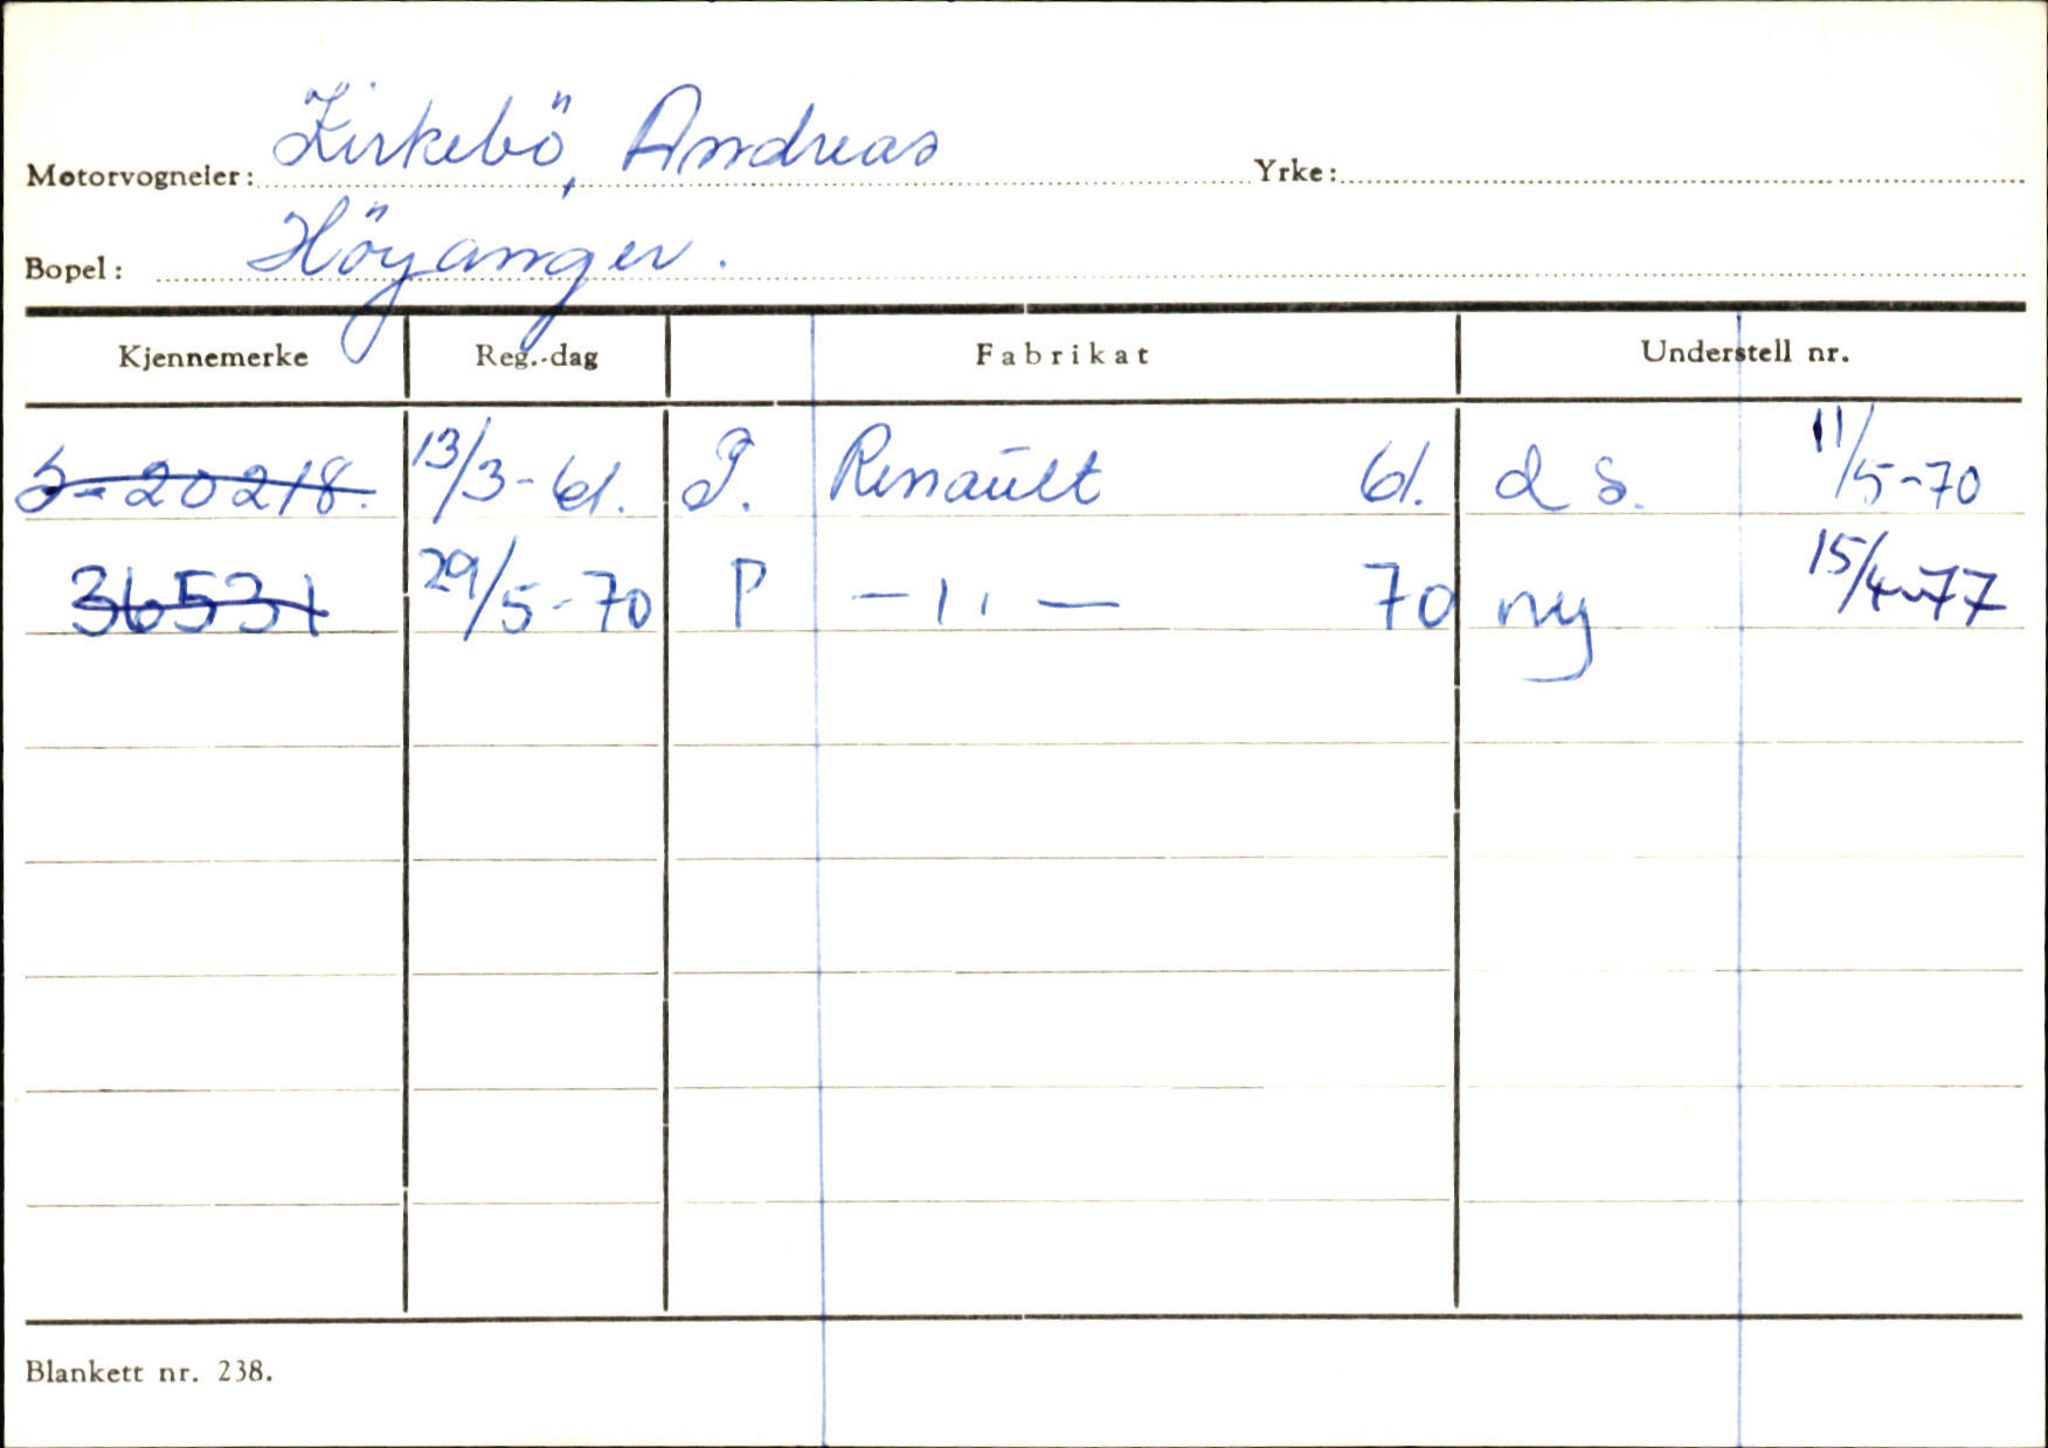 Motorvogneier: Kirkebö, Andreas Yrke:
Bopel: Höyanger.
Kjennemerke Reg.-dag Fabrikat Understell nr.
S-20218. 13/3-61. P. Renault 61. d s. 11/5-70
36531 29/5-70 P —ıı— 70 ny 15/4-77
Blankett nr. 238.